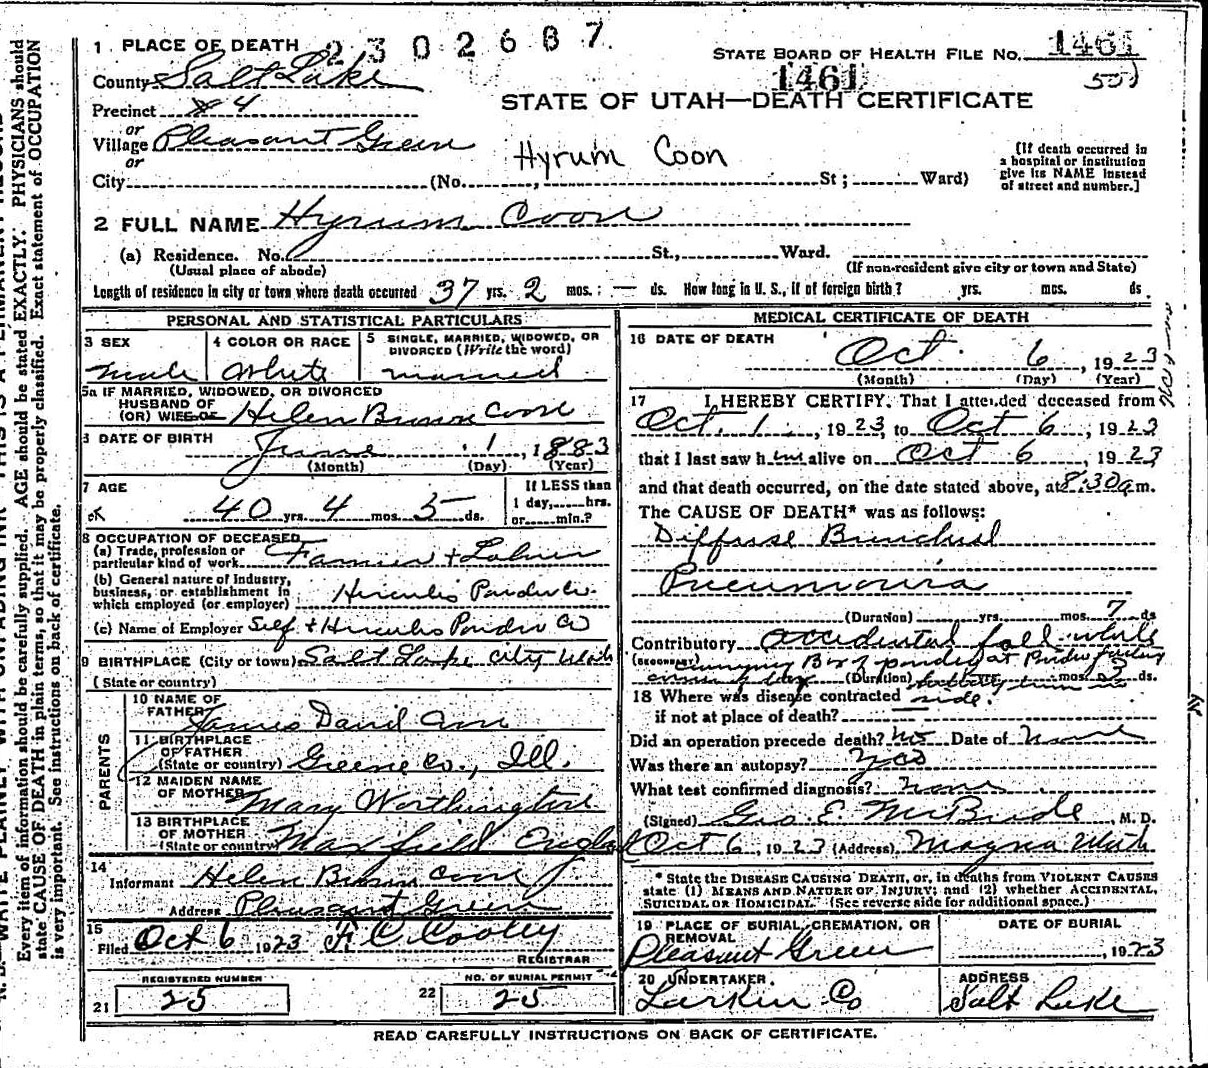 2302687
1 PLACE OF DEATH
STATE BOARD OF HEALTH FILE No. 1461
1461
County Salt Lake
STATE OF UTAH—DEATH CERTIFICATE
Precinct # 4
or
Village Pleasant Green
Hyrum Coon
or
City (No. , St; Ward)
[If death occurred in
a hospital or institution
give its NAME instead
of street and number.]
2 FULL NAME Hyrum Coon
(a) Residence. No. St., Ward.
(Usual place of abode) (If non-resident give city or town and State)
Length of residence in city or town where death occurred 37 yrs. 2 mos. — ds. How long in U. S., if of foreign birth? yrs. mos. ds.
PERSONAL AND STATISTICAL PARTICULARS
3 SEX
male
4 COLOR OR RACE
White
5 SINGLE, MARRIED, WIDOWED, OR
DIVORCED (Write the word)
married
5a IF MARRIED, WIDOWED, OR DIVORCED
HUSBAND OF
(OR) WIFE OF Helen Brown Coon
6 DATE OF BIRTH June 1, 1883
(Month) (Day) (Year)
7 AGE
40 yrs. 4 mos. 5 ds.
If LESS than
1 day, hrs.
or min.?
8 OCCUPATION OF DECEASED
(a) Trade, profession or
particular kind of work Farmer + Laborer
(b) General nature of industry,
business, or establishment in
which employed (or employer) Hercules Powder Co.
(c) Name of Employer Self + Hercules Powder Co
9 BIRTHPLACE (City or town) Salt Lake City Utah
(State or country)
PARENTS
10 NAME OF
FATHER James David Coon
11 BIRTHPLACE
OF FATHER
(State or country) Greene Co., Ill.
12 MAIDEN NAME
OF MOTHER Mary Worthington
13 BIRTHPLACE
OF MOTHER
(State or country) England
14
Informant Helen Brown Coon
Address Pleasant Green
15
Filed Oct 6 1923 C. Cooley
REGISTRAR
REGISTERED NUMBER
21 25
NO. OF BURIAL PERMIT
22 25
MEDICAL CERTIFICATE OF DEATH
16 DATE OF DEATH
Oct. 6, 1923
(Month) (Day) (Year)
17 I HEREBY CERTIFY, That I attended deceased from
Oct. 1, 1923, to Oct 6, 1923
that I last saw him alive on Oct 6, 1923
and that death occurred, on the date stated above, at 8:30a m.
The CAUSE OF DEATH* was as follows:
Diffuse Bronchial
Pneumonia
(Duration) yrs. mos. 7 ds
Contributory accidental fall while
(SECONDARY) carrying Box of powder at Powder factory
(Duration) mos. ds.
18 Where was disease contracted side.
if not at place of death?
Did an operation precede death? no Date of none
Was there an autopsy? yes
What test confirmed diagnosis? none
(Signed) Geo. E. McBride, M. D.
Oct 6, 1923 (Address) Magna Utah
* State the DISEASE CAUSING DEATH, or, in deaths from VIOLENT CAUSES
state (1) MEANS AND NATURE OF INJURY; and (2) whether ACCIDENTAL,
SUICIDAL OR HOMICIDAL. (See reverse side for additional space.)
19 PLACE OF BURIAL, CREMATION, OR
REMOVAL
Pleasant Green
DATE OF BURIAL
, 1923
20 UNDERTAKER
Larkin Co
ADDRESS
Salt Lake
READ CAREFULLY INSTRUCTIONS ON BACK OF CERTIFICATE.
Every item of information should be carefully supplied. AGE should be stated EXACTLY. PHYSICIANS should
state CAUSE OF DEATH in plain terms, so that it may be properly classified. Exact statement of OCCUPATION
is very important. See instructions on back of certificate.